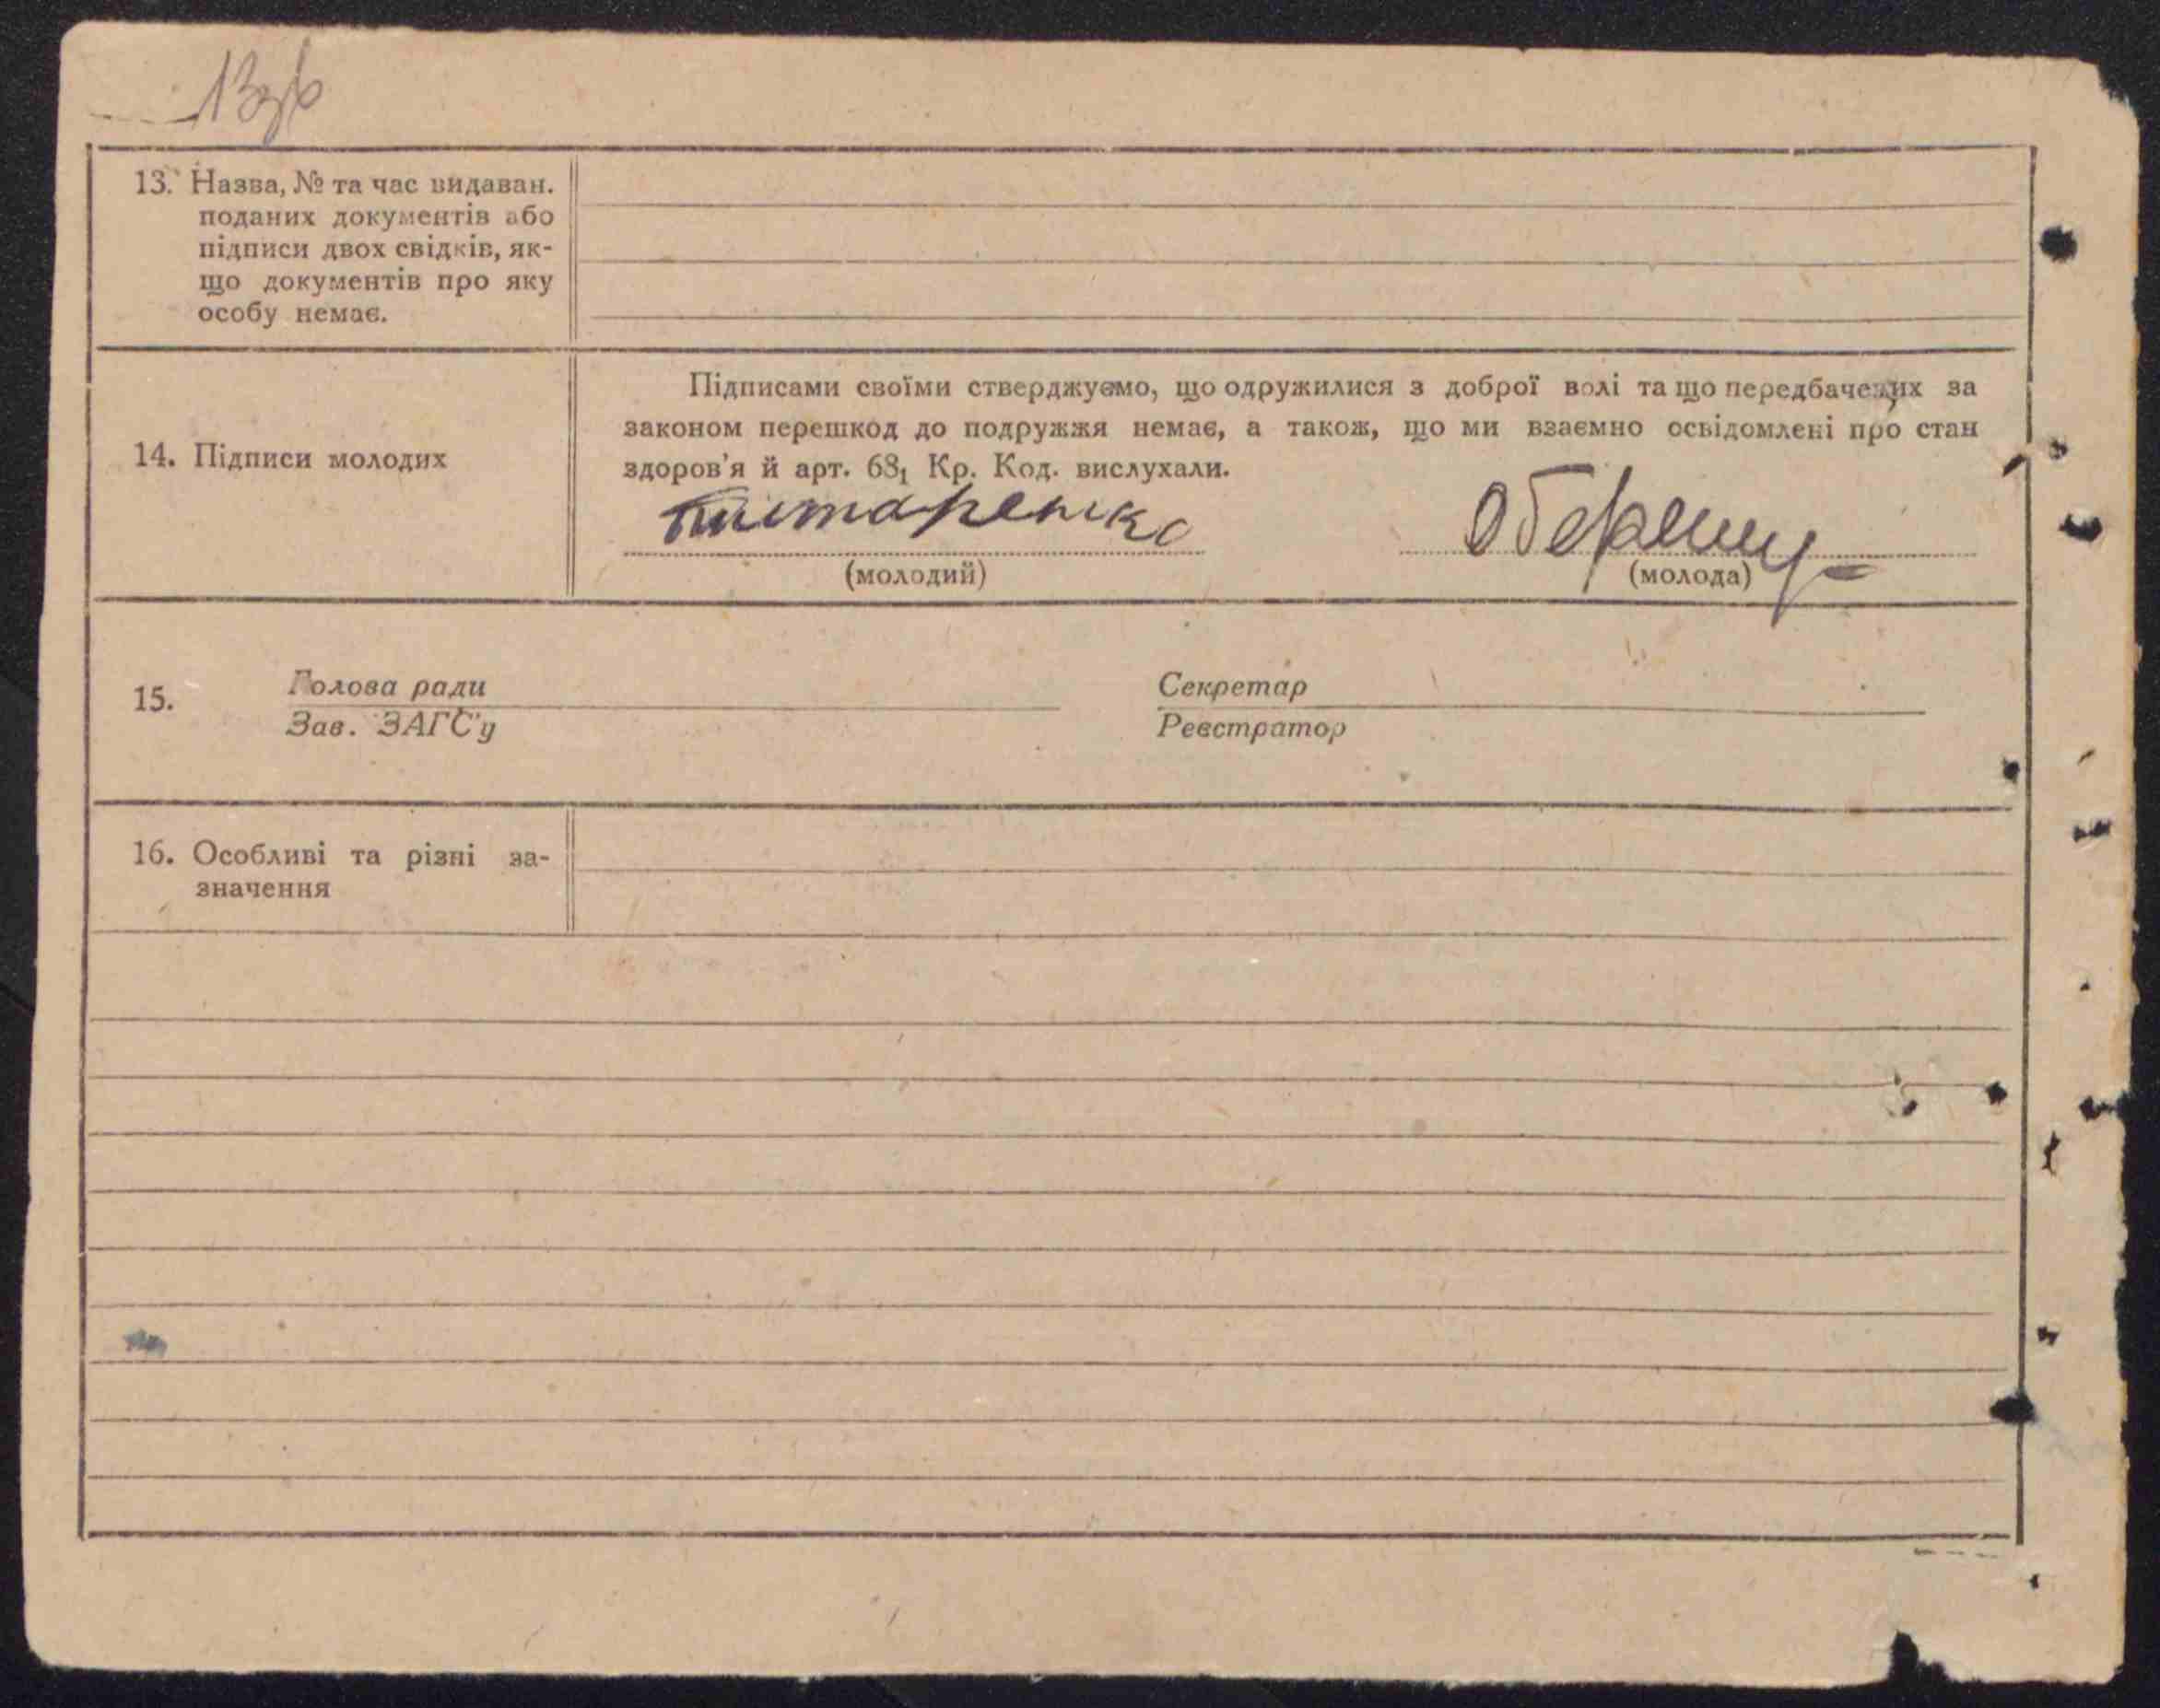 13зв
13. Назва, № та час видаван.
поданих документів або
підписи двох свідків, як-
що документів про яку
особу немає.
Підписами своїми стверджуємо, що одружилися з доброї волі та що передбачених за
законом перешкод до подружжя немає, а також, що ми взаємно освідомлені про стан
14. Підписи молодих
здоров'я й арт. 68₁ Кр. Код. вислухали.
(молодий)
(молода)
15.
Голова ради
Секретар
Зав. ЗАГС'у
Реєстратор
16. Особливі та різні за-
значення